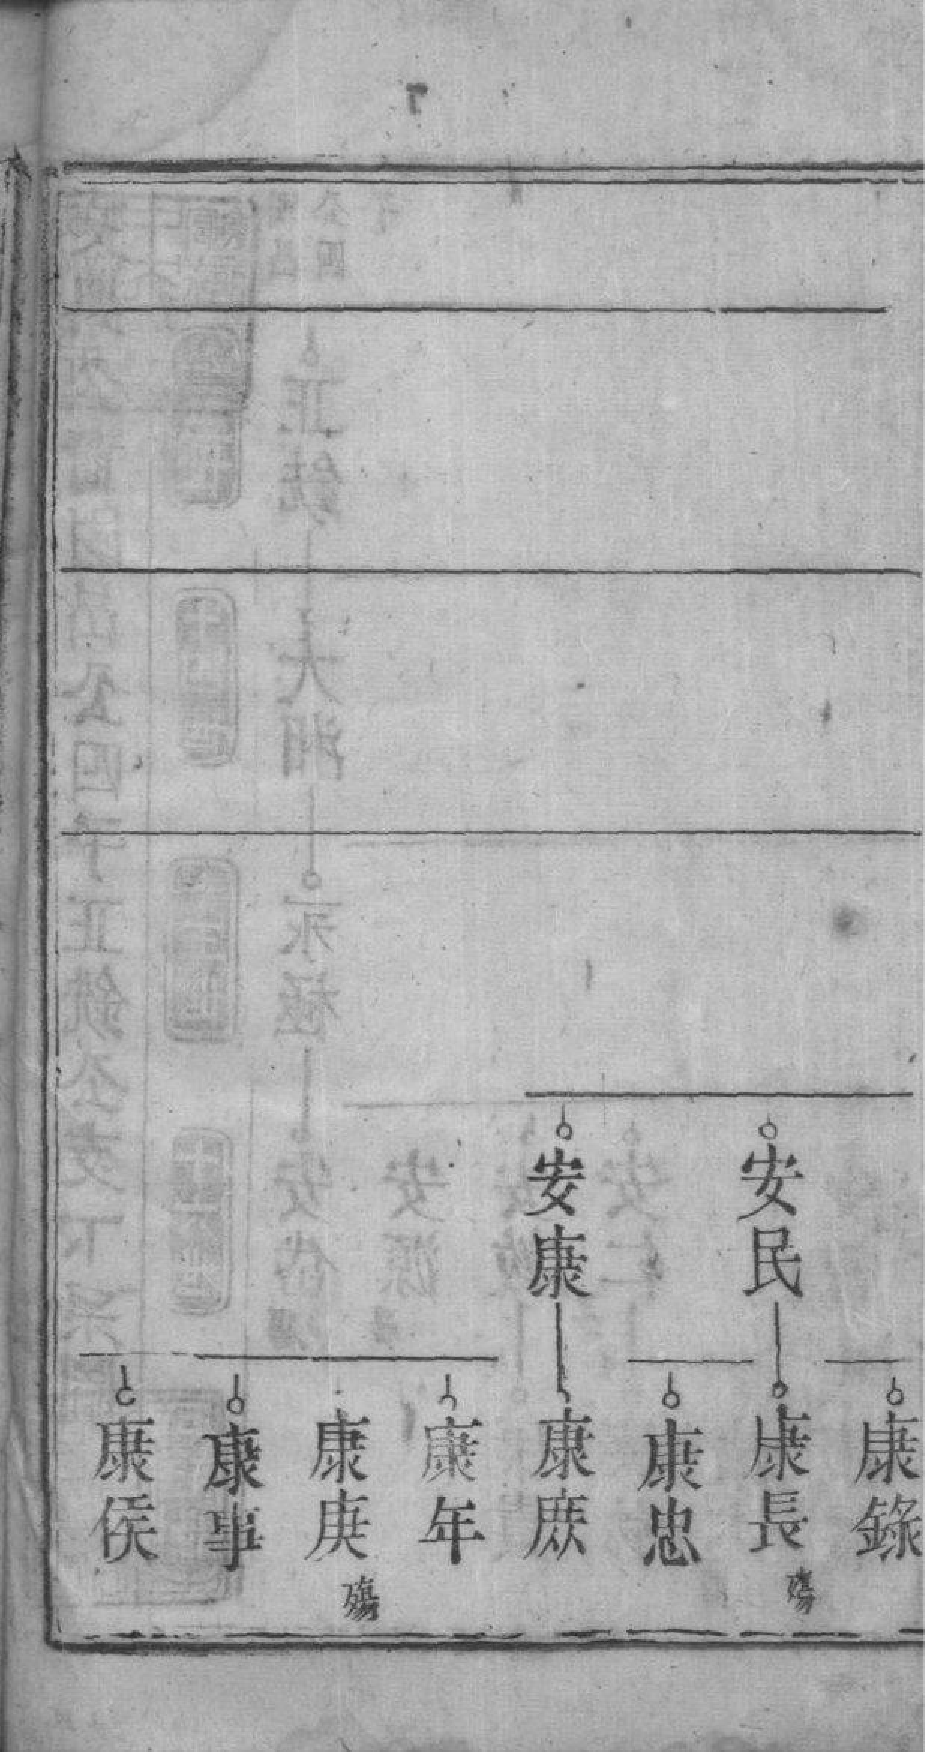 安民
安康
康錄
康長
殤
康忠
康庶
康年
康庚
殤
康事
康侯